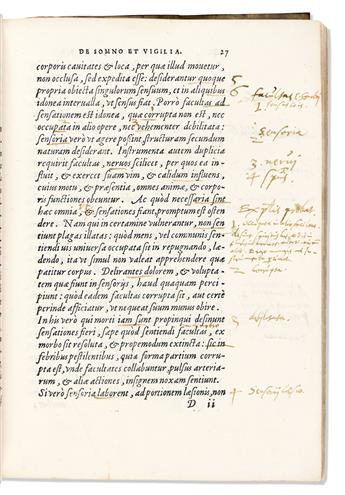 DE SOMNO ET VIGILIA. 27
corporis cauitates & loca, per quæ illud mouetur,
non occlusa, sed expedita esse: desiderantur quoque
propria obiecta singulorum sensuum, et in aliquibus
idonea interualla, vt sensus fiat. Porrò facultas ad
sensationem est idonea, quæ corrupta non est, nec
occupata in alio opere, nec vehementer debilitata:
sensoria verò vt agere possint structuram secundum
naturam desiderāt. Instrumenta autem duplicia
requirit facultas, neruos scilicet, per quos ea in-
stuit, & exercet suam vim, & calidum influens,
cuius motu, & præsentia, omnes animæ, & corpo-
ris functiones obeuntur. Ac quòd necessaria sint
hæc omnia, vt & sensationes fiant, promptum est ostē
dere. Nam qui in certamine vulnerantur, non sen
tiunt plagas illatas: quòd mens, vel communis sen-
tiendi vis vniuersa occupata sit in repugnando, læ-
dendo, ita vt simul non valeat apprehendere quæ
patitur corpus. Delirantes dolorem, & volupta-
tem quæ fiunt in sensorijs, haud quaquam perci-
piunt: quod eadem facultas corrupta sit, aut certè
perinde afficiatur, vt nequeat suum munus obire.
In his verò qui morti iam sunt propinqui desinunt
sensationes fieri, sæpe quòd sentiendi facultas, ex
morbo sit resoluta, & propemodum extincta: sic in
febribus pestilentibus, quia forma partium corru-
pta est, vnde facultates collabuntur, pulsus arteria-
rum, & aliæ actiones, insignem noxam sentiunt.
Si verò sensoria laborent, ad portionem læsionis, non
D ii
5
6 facultas
1
2 sensoria
3 nerui
4
2
3
4